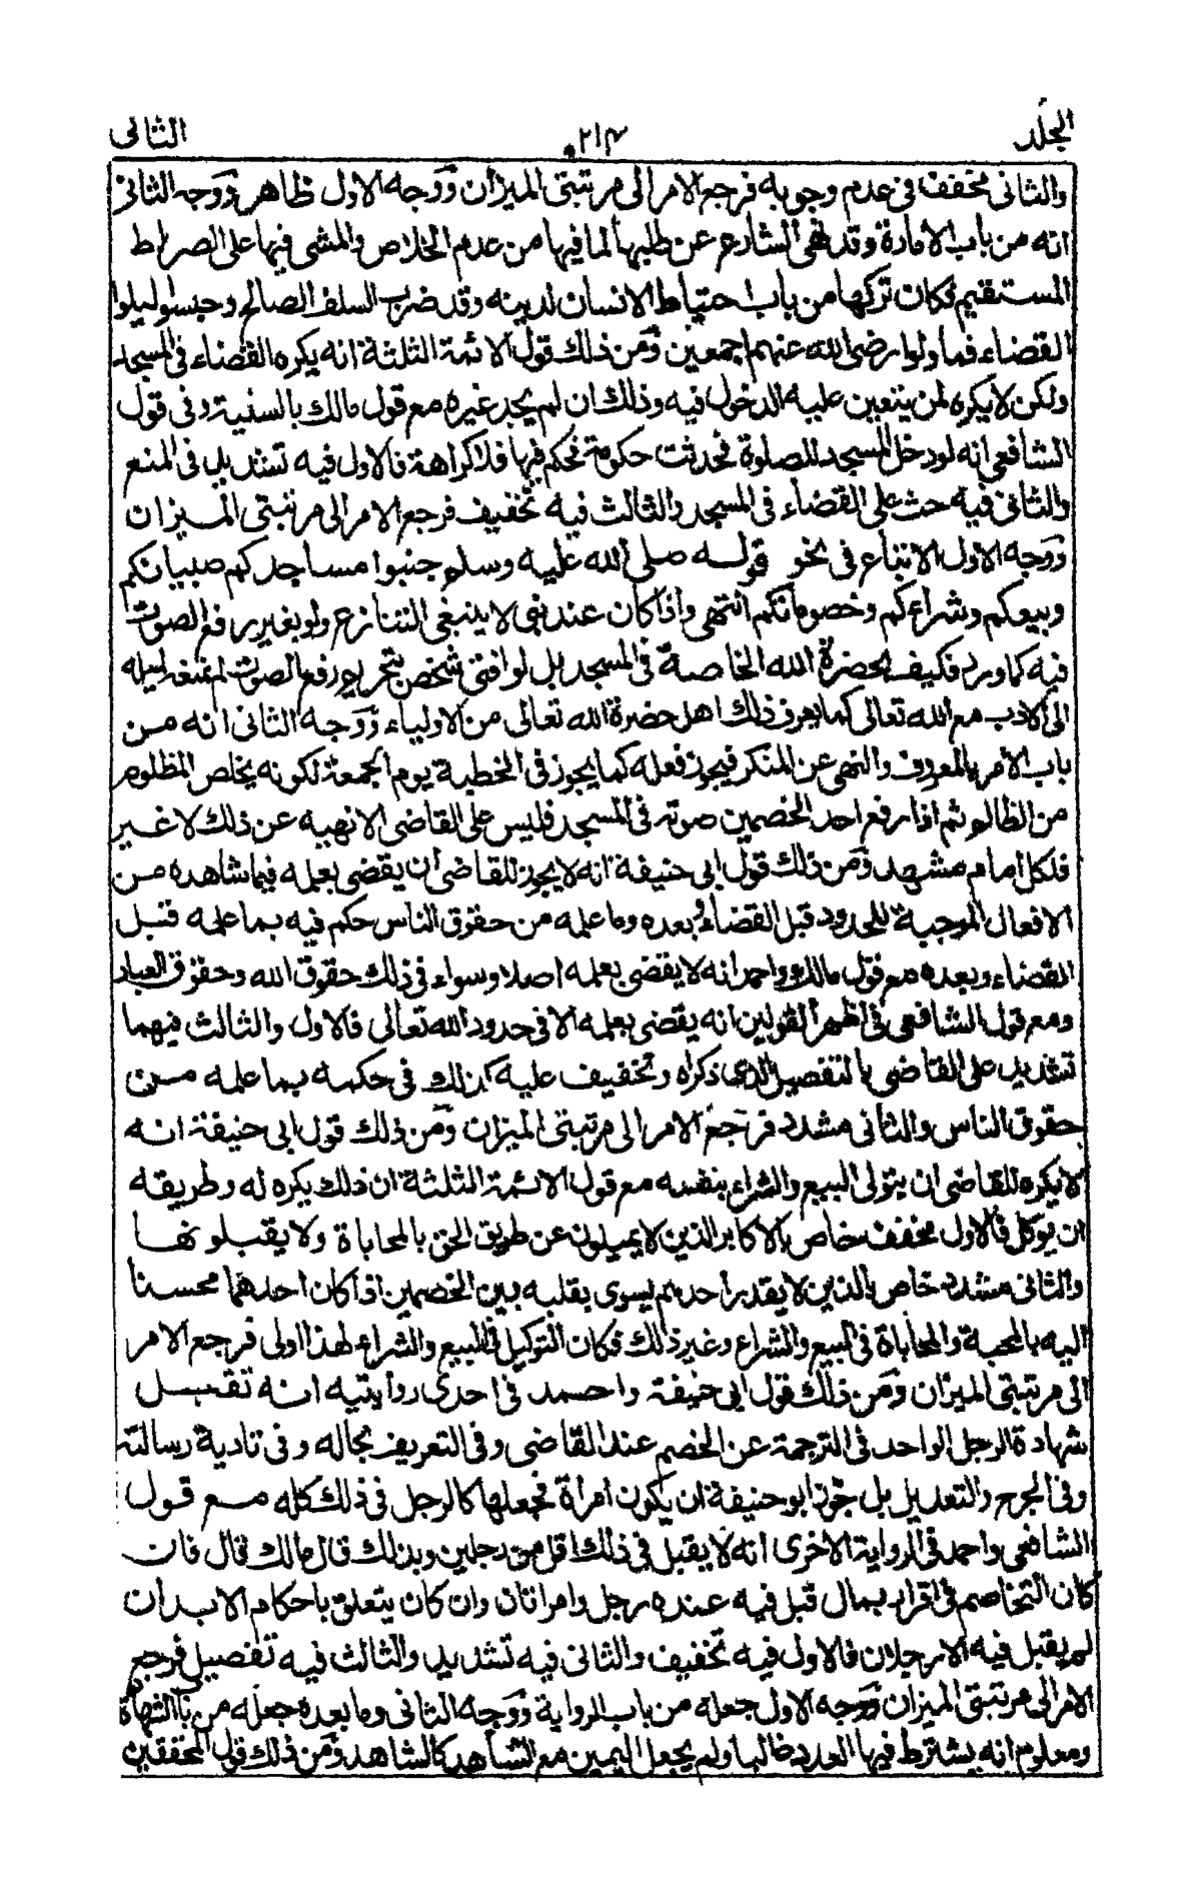 الجلد ٢١٣ الثانى
والثانى مخفف فى عدم وجوبه فرجع الامر الى مرتبتى الميزان ووجه الاول ظاهر ووجه الثانى
انه من باب الامارة وقد نهى الشارع عن طلبها لما فيها من عدم الخلاص والمشى فيها على الصراط
المستقيم فكان تركها من باب احتياط الانسان لدينه وقد ضرب السلف الصالح وحبسوا ليلوا
القضاء فما ولوا رضى الله عنهم اجمعين ومن ذلك قول الائمة الثلثة انه يكره القضاء فى المسجد
ولكن لا يكره لمن يتعين عليه الدخول فيه وذلك ان لم يجد غيره مع قول مالك بالسنية وفى قول
الشافعى انه لو دخل المسجد للصلوة فحدثت حكومة فحكم فيها فلا كراهة فالاول فيه تشديد فى المنع
والثانى فيه حث على القضاء فى المسجد والثالث فيه تخفيف فرجع الامر الى مرتبتى الميزان
ووجه الاول الاتباع فى نحو قوله صلى الله عليه وسلم جنبوا مساجدكم صبيانكم
وبيعكم وشراءكم وخصوماتكم انتهى واذا كان عند نبى لا ينبغى التنازع ولو بغير رفع الصوت
فيه كما ورد فكيف بحضرة الله الخاصة فى المسجد بل لو افتى شخص بتحريم رفع الصوت لم تمنعه لسبيله
الى الادب مع الله تعالى كما يعرف ذلك اهل حضرة الله تعالى من الاولياء ووجه الثانى انه من
باب الامر بالمعروف والنهى عن المنكر فيجوز فعله كما يجوز فى الخطبة يوم الجمعة لكونه يخلص المظلوم
من الظالم ثم اذا رفع احد الخصمين صوته فى المسجد فليس على القاضى الا نهيه عن ذلك لا غير
فلكل امام مشهد ومن ذلك قول ابى حنيفة انه لا يجوز للقاضى ان يقضى بعلمه فيما شاهده من
الافعال الموجبة للحدود قبل القضاء وبعده وما علمه من حقوق الناس حكم فيه بما علمه قبل
القضاء وبعده مع قول مالك واحمد انه لا يقضى بعلمه اصلا وسواء فى ذلك حقوق الله وحقوق العباد
ومع قول الشافعى فى اظهر القولين انه يقضى بعلمه الا فى حدود الله تعالى فالاول والثالث فيهما
تشديد على القاضى بالتفصيل الذى ذكراه وتخفيف عليه كذلك فى حكمه بما علمه من
حقوق الناس والثانى مشدد فرجع الامر الى مرتبتى الميزان ومن ذلك قول ابى حنيفة انه
لا يكره للقاضى ان يتولى البيع والشراء بنفسه مع قول الائمة الثلثة ان ذلك يكره له وطريقه
ان يوكل فالاول مخفف خاص بالاكابر الذين لا يميلون عن طريق الحق بالمحاباة ولا يقبلونها
والثانى مشدد خاص بالذين لا يقدر احدهم يسوى بقلبه بين الخصمين اذا كان احدهما محسنا
اليه بالمحبة والمحاباة فى البيع والشراء وغير ذلك فكان التوكيل فى البيع والشراء لهذا اولى فرجع الامر
الى مرتبتى الميزان ومن ذلك قول ابى حنيفة واحمد فى احدى روايتيه انه تقبل
شهادة الرجل الواحد فى الترجمة عن الخصم عند القاضى وفى التعريف بحاله وفى تادية رسالته
وفى الجرح والتعديل بل جوز ابو حنيفة ان يكون امرأة فجعلها كالرجل فى ذلك كله مع قول
الشافعى واحمد فى الرواية الاخرى انه لا يقبل فى ذلك اقل من رجلين وبذلك قال مالك قال فان
كان التخاصم فى اقرار بمال قبل فيه عنده رجل وامراتان وان كان يتعلق باحكام الابدان
لم يقبل فيه الا رجلان فالاول فيه تخفيف والثانى فيه تشديد والثالث فيه تفصيل فرجع
الامر الى مرتبتى الميزان ووجه الاول جعله من باب الرواية ووجه الثانى وما بعده جعله من باب الشهادة
ومعلوم انه يشترط فيها العدد غالبا ولم يجعل اليمين مع الشاهد كالشاهد ومن ذلك قول المحققين